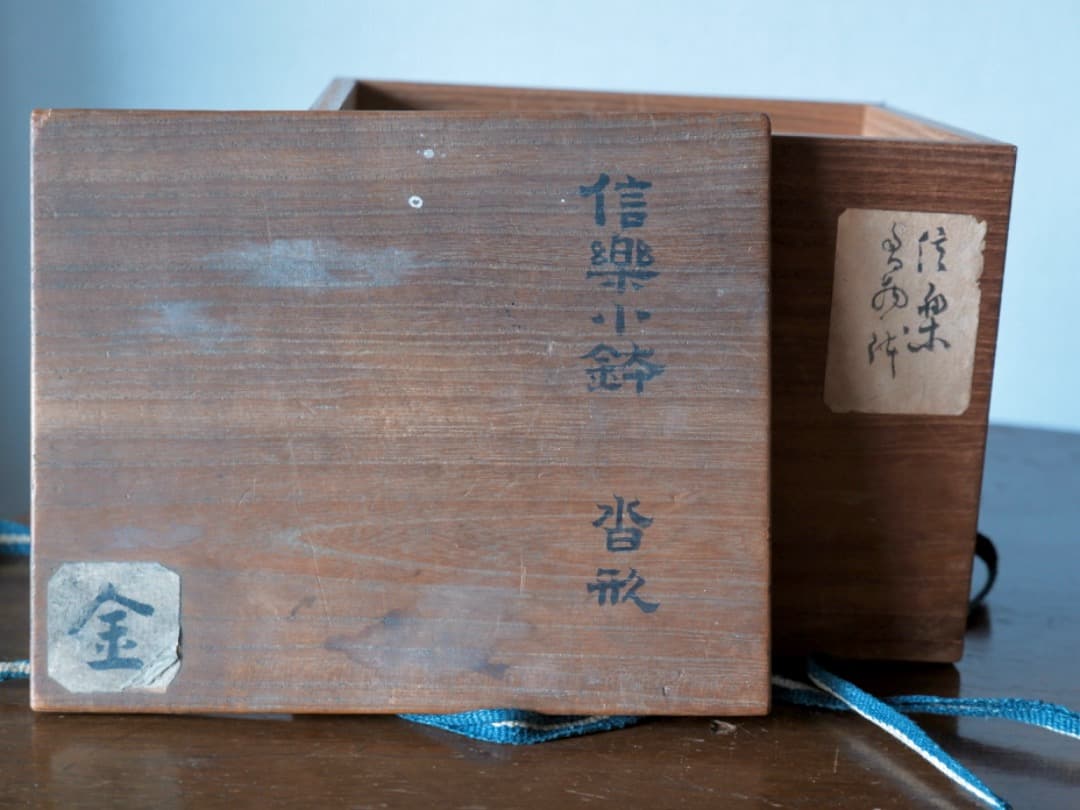 信樂小鉢 沓形
金
信楽